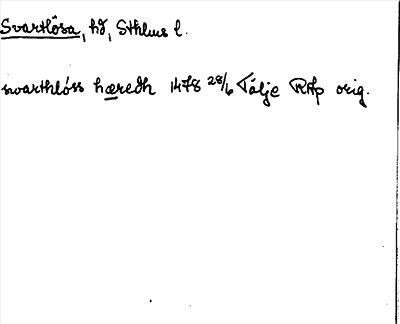 Svartlösa, hd, Sthlms l.
svarthlöss hæredh 1478 28/6 Tälje RAp orig.